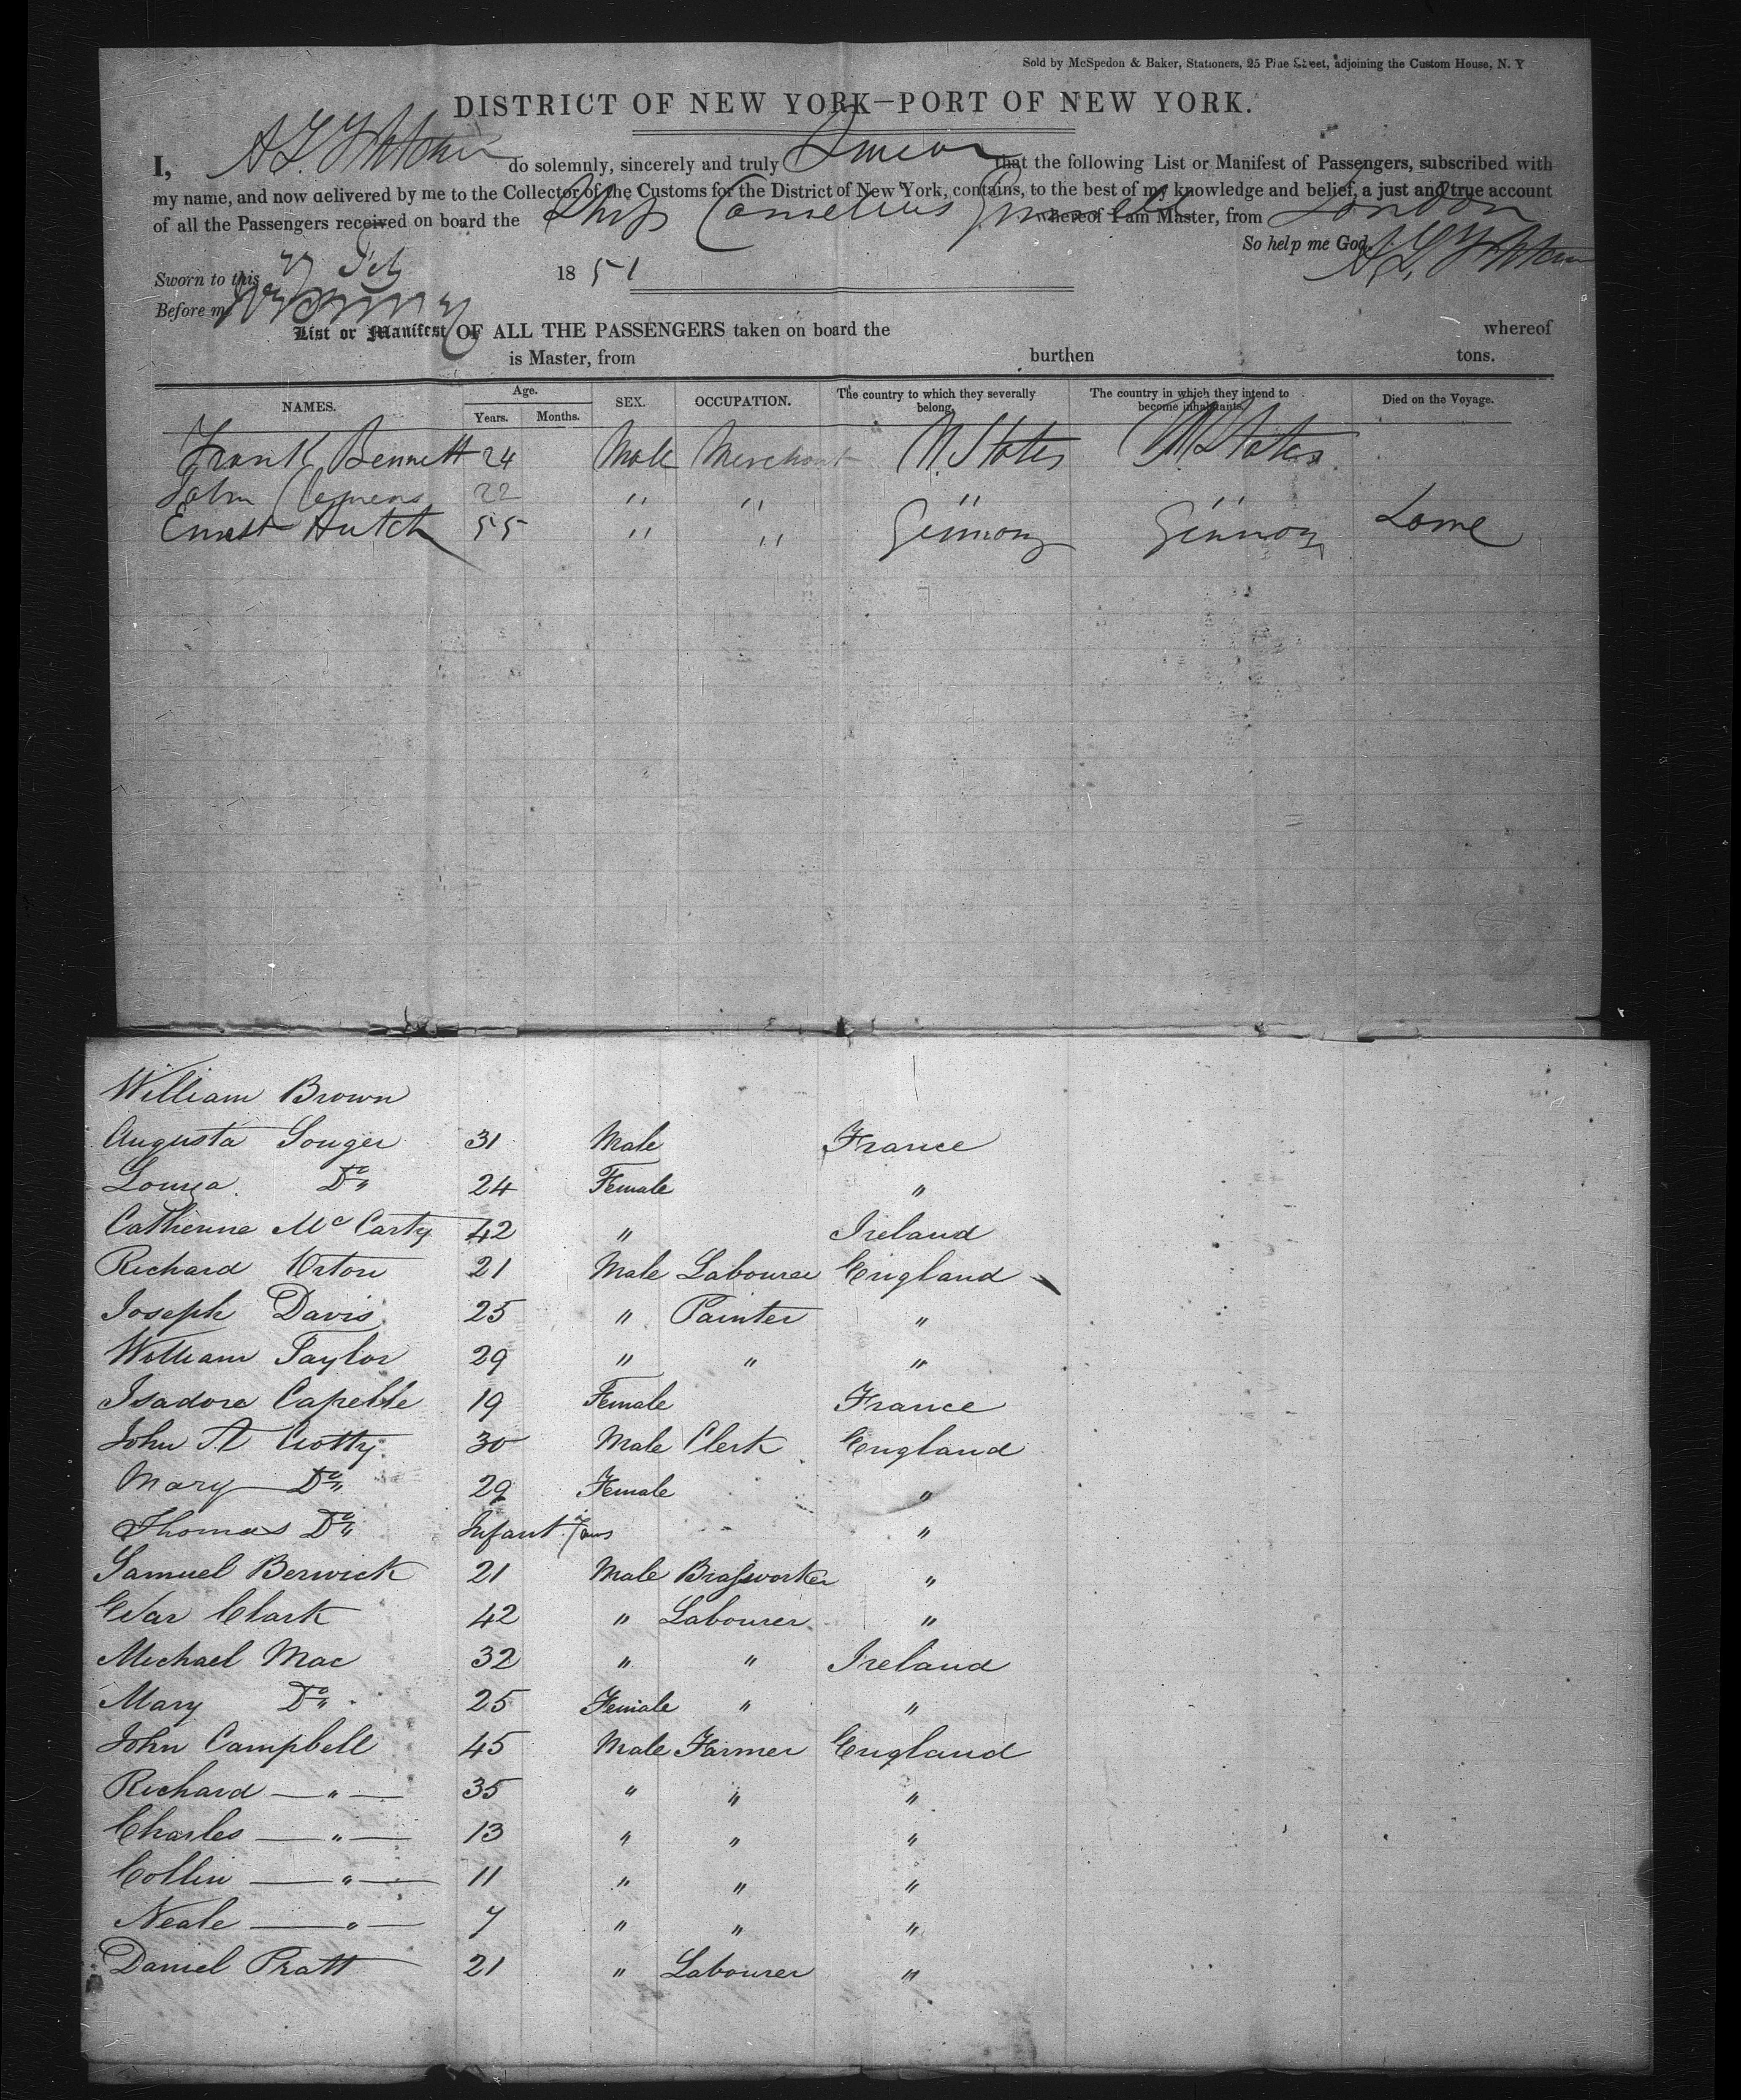 Sold by McSpedon & Baker, Stationers, 25 Pine Street, adjoining the Custom House, N. Y
DISTRICT OF NEW YORK—PORT OF NEW YORK.
I, do solemnly, sincerely and truly Swear that the following List or Manifest of Passengers, subscribed with
my name, and now delivered by me to the Collector of the Customs for the District of New York, contains, to the best of my knowledge and belief, a just and true account
of all the Passengers received on board the Ship Cornelius Grinnell whereof I am Master, from London
So help me God.
Sworn to this 27 Feb 1851
Before me
List or Manifest OF ALL THE PASSENGERS taken on board the whereof
is Master, from burthen tons.
NAMES. Age. Years. Months. SEX. OCCUPATION. The country to which they severally belong. The country in which they intend to become inhabitants. Died on the Voyage.
Frank Bennett 24 Male Merchant U. States U. States
John Clemens 22 " " " "
Ernest Hutch 55 " " Germany Germany
William Brown
Augusta Souger 31 Male France
Louisa Do 24 Female "
Catherine McCarty 42 " Ireland
Richard Orton 21 Male Labourer England
Joseph Davis 25 " Painter "
William Taylor 29 " " "
Isadora Capelle 19 Female France
John A Crotty 30 Male Clerk England
Mary Do 29 Female "
Thomas Do Infant "
Samuel Berwick 21 Male Brassworker "
Clark 42 " Labourer "
Michael Mac 32 " " Ireland
Mary Do 25 Female " "
John Campbell 45 Male Farmer England
Richard — " — 35 " " "
Charles — " — 13 " " "
Collin — " — 11 " " "
Neale — " — 7 " " "
Daniel Pratt 21 " Labourer "